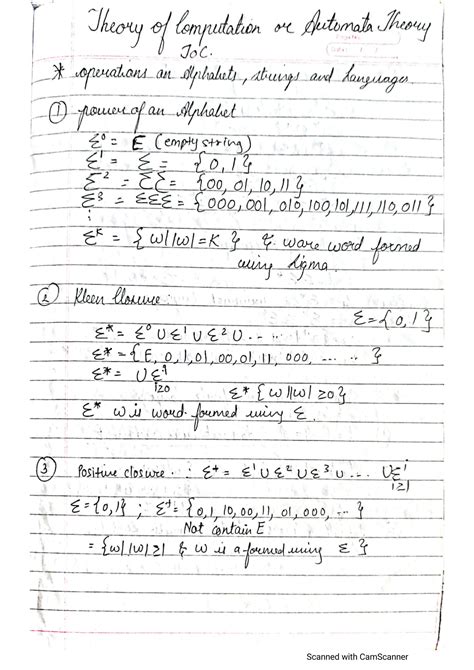 Theory of Computation or Automata Theory
ToC.
* operations on Alphabets, strings and Languages
① power of an Alphabet
Σ⁰ = E (empty string)
Σ¹ = Σ = {0, 1}
Σ² = ΣΣ = {00, 01, 10, 11}
Σ³ = ΣΣΣ = {000, 001, 010, 100, 101, 111, 110, 011}
⋮
Σᴷ = { w | |w| = K } & w are word formed
using sigma.
② Kleen Closure:
Σ = {0, 1}
Σ* = Σ⁰ ∪ Σ¹ ∪ Σ² ∪ ....
Σ* = {E, 0, 1, 01, 00, 01, 11, 000, ..... }
Σ* = ∪Σⁱ
i≥0
Σ* {w | |w| ≥ 0}
Σ* w is word formed using Σ.
③ Positive closure : Σ⁺ = Σ¹ ∪ Σ² ∪ Σ³ ∪ .... ∪Σⁱ
i≥1
Σ = {0, 1} ; Σ⁺ = {0, 1, 10, 00, 11, 01, 000, ... }
Not contain E
= {w | |w| ≥ 1 & w is a formed using Σ }
Scanned with CamScanner